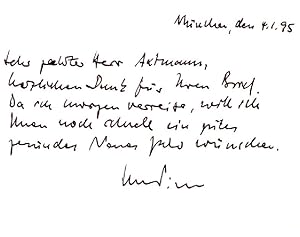 München, den 4.1.95
Sehr geehrter Herr Axtmann,
herzlichen Dank für Ihren Brief.
Da ich morgen verreise, will ich
Ihnen noch schnell ein gutes
gesundes Neues Jahr wünschen.